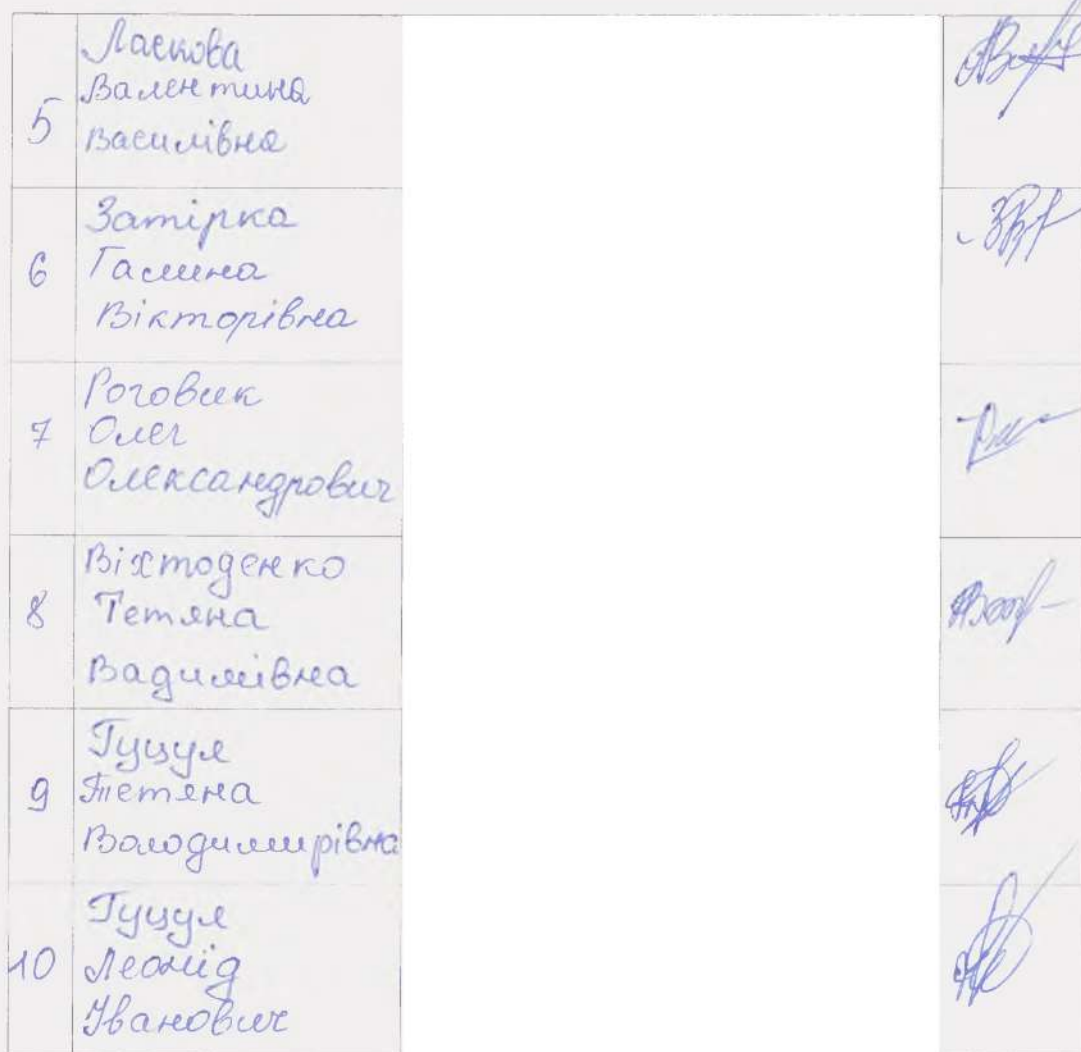 Ласкова
Валентина
5 Василівна
Затірка
6 Галина
Вікторівна
Роговик
7 Олег
Олександрович
Віхтоденко
8 Тетяна
Вадимівна
Гуцул
9 Тетяна
Володимирівна
Гуцул
10 Леонід
Іванович